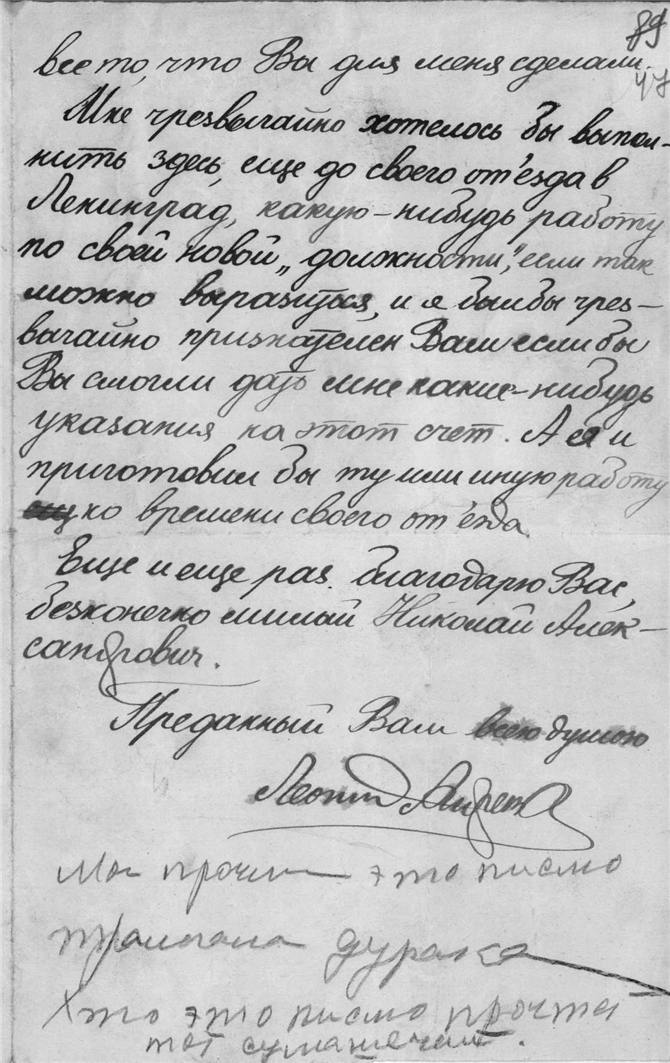 89
47
все то, что Вы для меня сделали.
Мне чрезвычайно хотелось бы выпол-
нить здесь, еще до своего от'езда в
Ленинград, какую-нибудь работу
по своей новой „должности", если так
можно выразиться, и я был бы чрез-
вычайно признателен Вам если бы
Вы смогли дать мне какие-нибудь
указания на этот счет. А я и
приготовил бы ту или иную работу
ко времени своего от'езда.
Еще и еще раз благодарю Вас,
безконечно милый Николай Алек-
сандрович.
Преданный Вам всею душою
Леонид
это писмо
дурака
Хто это писмо прочтет
тот